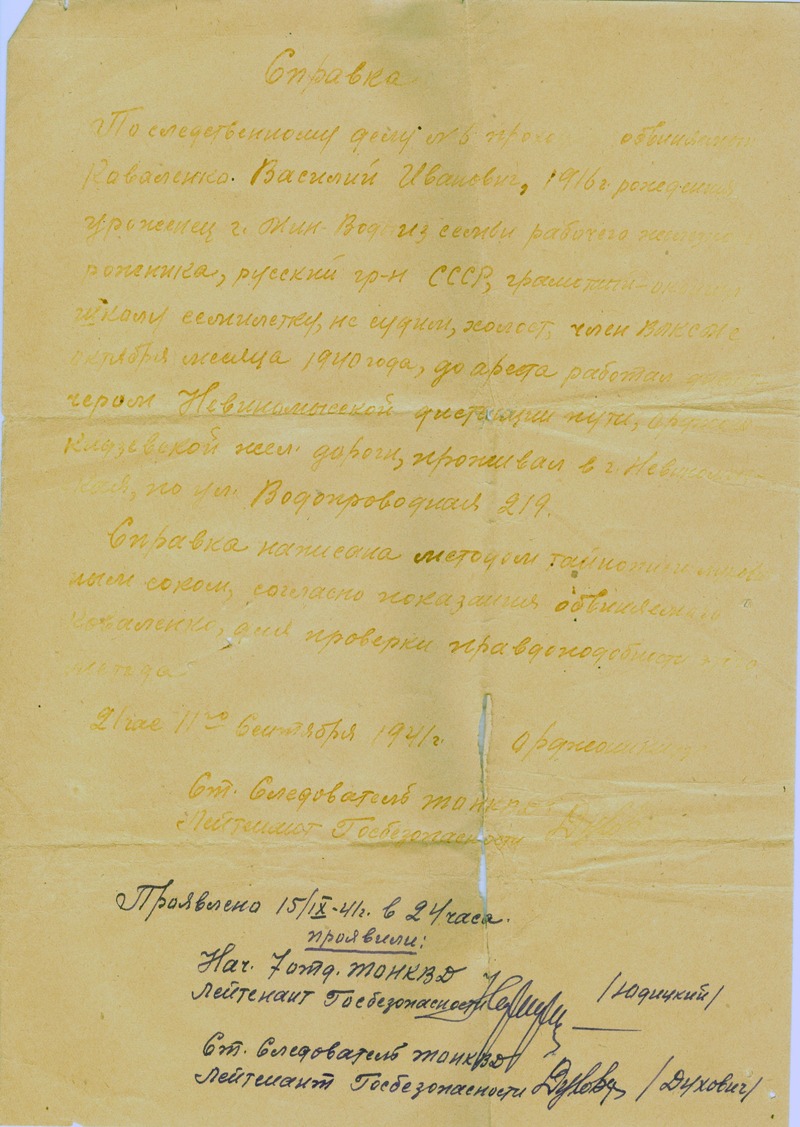 Справка
По следственному делу № 5 обвиняемый
Коваленко Василий Иванович, 1916 г. рождения
уроженец г. Мин-Воды из семьи рабочего
рожника, русский гр-н СССР,
школу семилетку, не судим, холост, член ВЛКСМ с
октября месяца 1940 года, до ареста работал
чером Невинномысской дистанции пути,
жел. дороги, проживал в г.
кая, по ул. Водопроводная 219.
Справка написана методом тайнописи
ным соком, согласно показания обвиняемого
Коваленко, для проверки правдоподобности
метода
21 час 11го Сентября 1941 г.
Ст. Следователь ТОНКВД
Лейтенант Госбезопасности
Проявлено 15/IX-41г. в 24 часа.
проявили:
Нач. 7 отд. ТОНКВД
Лейтенант Госбезопасности /Юдицкий/
Ст. Следователь ТОНКВД
Лейтенант Госбезопасности /Духович/